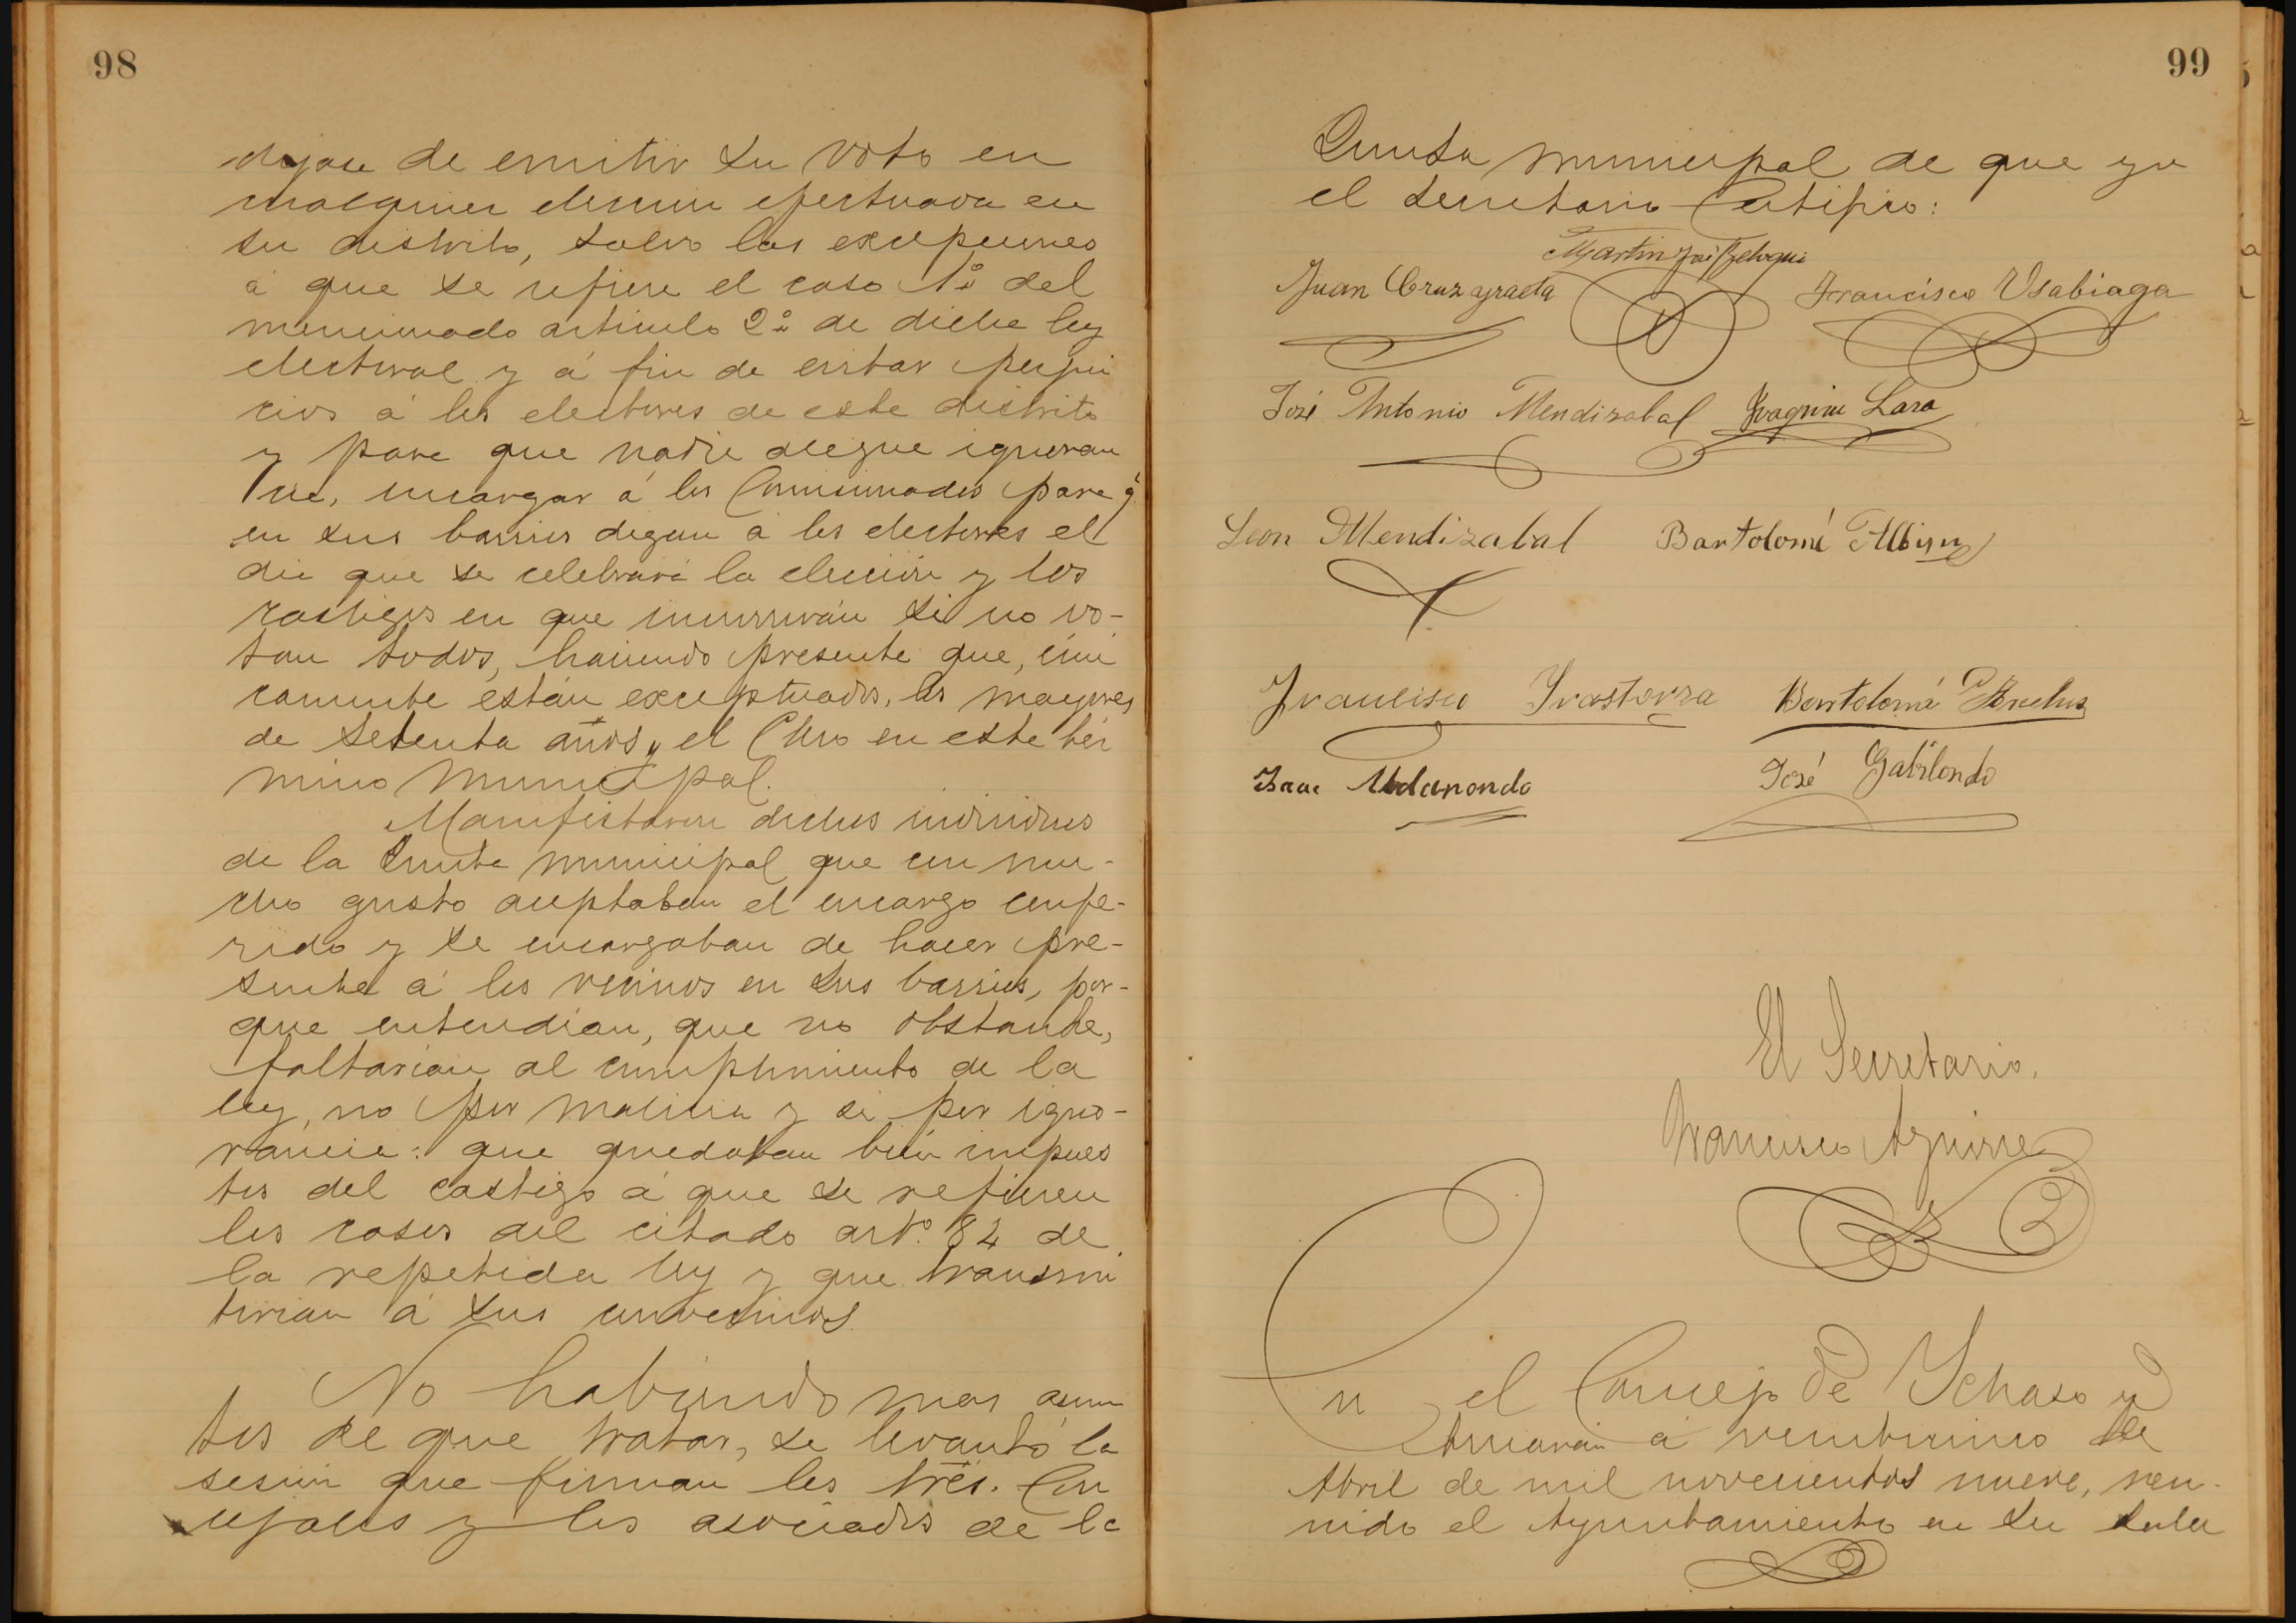 98
dejare de emitir su voto en
cualquier elección efectuada en
su distrito, salvo las excepciones
á que se refiere el caso 1º del
mencionado artículo 2º de dicha ley
electoral y á fin de evitar perjui
cios á los electores de este distrito
y para que nadie alegue ignoran
cia, encargar á los Comisionados para q.
en sus barrios digan á los electores el
dia que se celebrará la elección y los
castigos en que incurrirán si no vo-
tan todos, haciendo presente que, úni
camente están exceptuados, los mayores
de setenta años y el Clero en este tér
mino municipal.
Manifestaron dichos individuos
de la Junta municipal que con mu-
cho gusto aceptaban el encargo confe-
rido y se encargaban de hacer pre-
sente á los vecinos en sus barrios, por-
que entendían, que no obstante,
faltarían al cumplimiento de la
ley, no por malicia y si por igno-
rancia: que quedaban bién impues
tos del castigo á que se refieren
los casos del citado artº. 84 de
la repetida ley y que transmi
tirian á sus convecinos.
No habiendo mas asun
tos de que tratar, se levantó la
sesión que firman los Sres. Con
cejales y los asociados de la
99
Junta municipal de que yo
el Secretario Certifico:
Martin José
Juan Cruz Francisco Usabiaga
José Antonio Mendizabal Joaquin Lasa
Leon Mendizabal Bartolomé Albisu
Francisco Irastorza Bartolomé
Isaac Aldanondo José Gabilondo
El Secretario,
Francisco Aguirre
En el Concejo de Ichaso y
á veinticinco de
Abril de mil novecientos nueve, reu-
nido el Ayuntamiento en su sala